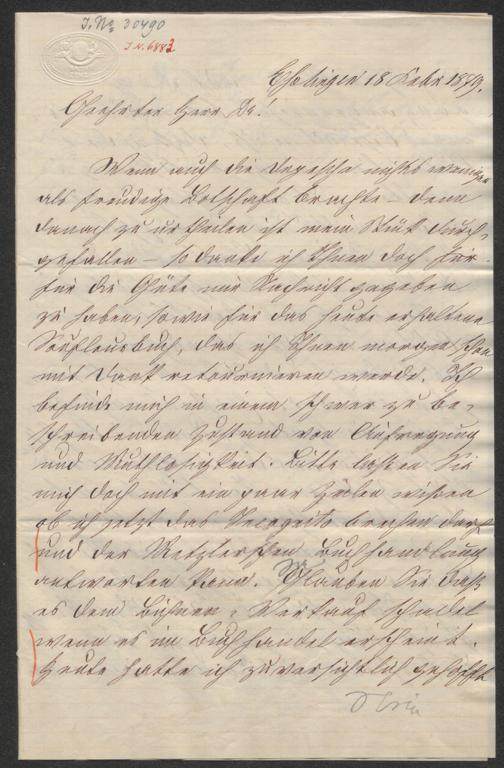 J. № 30490
J.N. 6883
Eßlingen 18 Febr 1879.
Geehrter Herr Dr!
Wenn auch die Depesche nichts weniger
als freudige Botschaft brachte – denn
danach zu urtheilen ist mein Stück durch-
gefallen – so danke ich Ihnen doch sehr
für die Güte mir Nachricht gegeben
zu haben, sowie für das heute erhaltene
Soufleurbuch, das ich Ihnen morgen schon
mit Dank retournieren werde. Ich
befinde mich in einem schwer zu be-
schreibenden Zustand von Aufregung
und Muthlosigkeit. Bitte lassen Sie
mich doch mit ein paar Zeilen wissen
ob ich jetzt das Incognito brechen darf
und der Metzlerschen Buchhandlung
antworten kann. Glauben Sie daß
es dem Bühnen-Verkauf schadet
wenn es im Buchhandel erscheint.
Heute hatte ich zuversichtlich gehofft